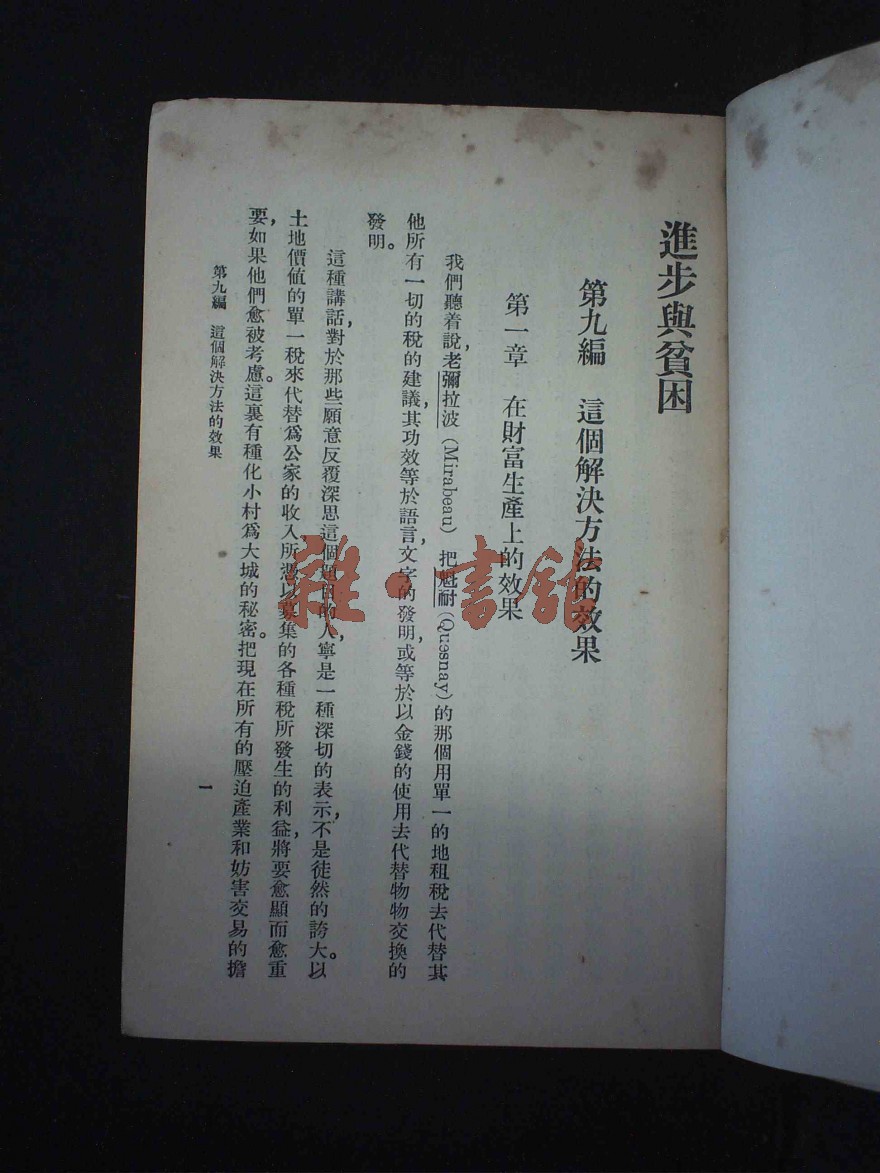 進步與貧困
第九編 這個解決方法的效果
第一章 在財富生產上的效果
我們聽着說,老彌拉波(Mirabeau)把魁耐(Quesnay)的那個用單一的地租稅去代替其
他所有一切的稅的建議,其功效等於語言,文字的發明,或等於以金錢的使用去代替物物交換的
發明。
這種講話,對於那些願意反覆深思這個題目的人,寧是一種深切的表示,不是徒然的誇大。以
土地價值的單一稅來代替爲公家的收入所憑以募集的各種稅所發生的利益,將要愈顯而愈重
要,如果他們愈被考慮。這裏有種化小村爲大城的秘密。把現在所有的壓迫產業和妨害交易的擔
第九編 這個解決方法的效果
一
雜·書館